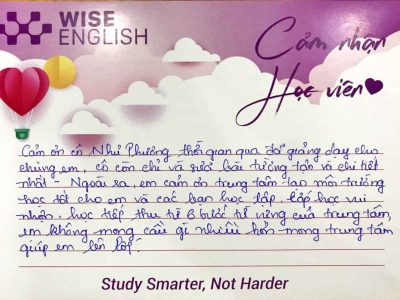 WISE
ENGLISH
Cảm nhận
Học viên
Cảm ơn cô Như Phương, thời gian qua đã giảng dạy cho
chúng em, cô còn chỉ và sửa bài tường tận và chi tiết
nhất - Ngoài ra, em cảm ơn trung tâm tạo môi trường
học tốt cho em và các bạn học tập, lớp học vui
nhộn, học tiếp thu từ 6 bước tế riêng của trung tâm,
em không mong cầu gì nhiều hơn mong trung tâm
giúp em lên lớp.
Study Smarter, Not Harder